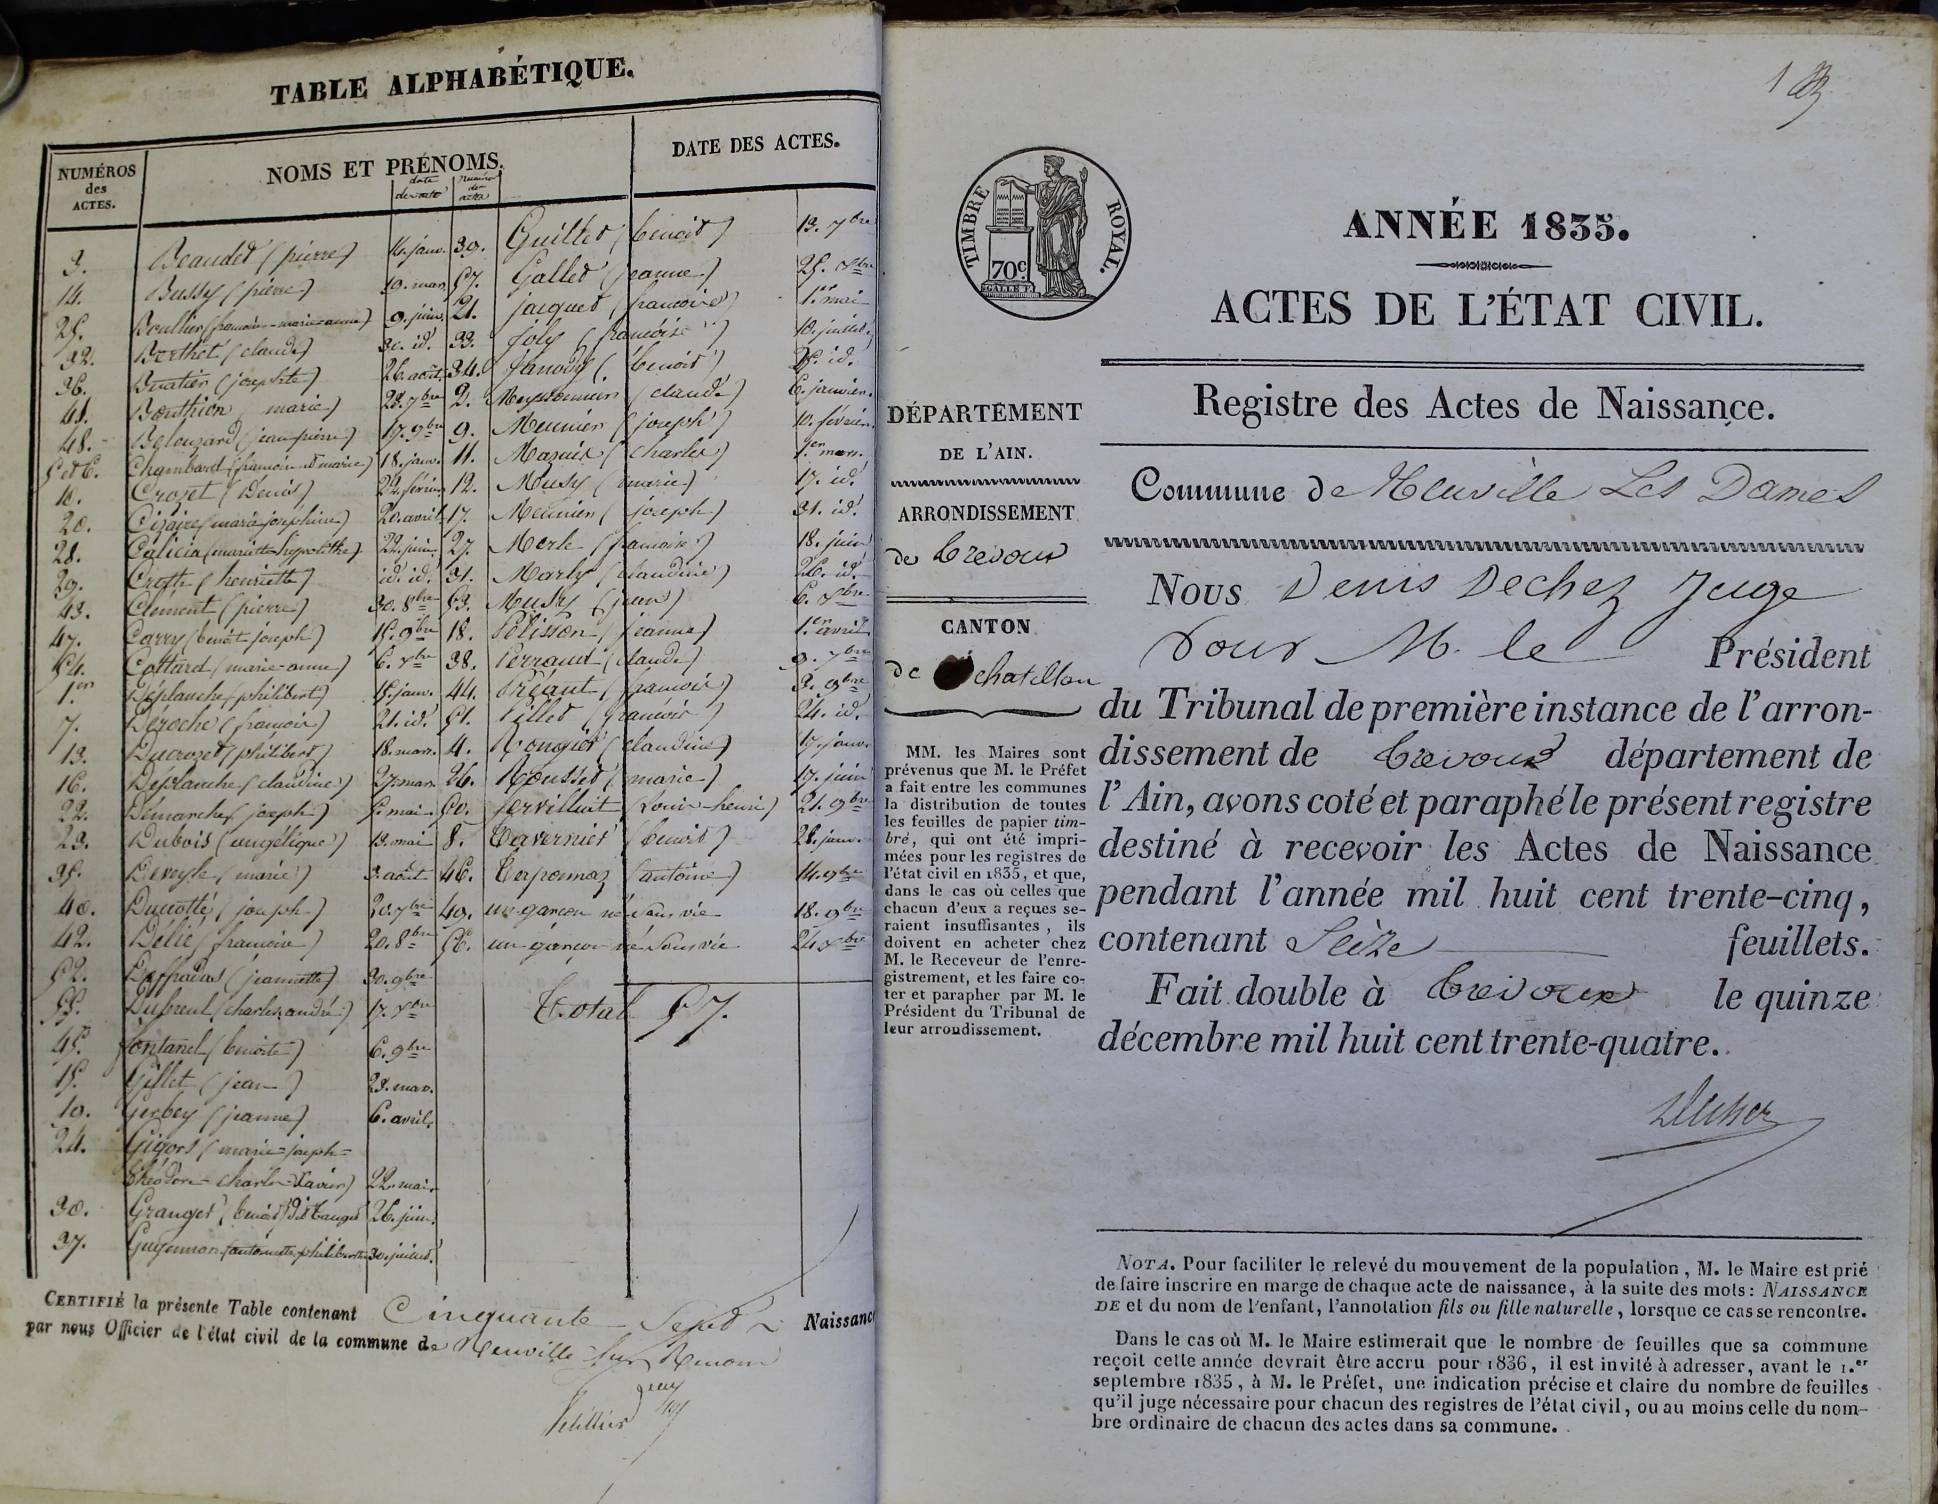 TABLE ALPHABÉTIQUE.
NUMÉROS
des
ACTES.
NOMS ET PRÉNOMS.
date
de acte
Numéro
des
actes
DATE DES ACTES.
3. Beaudet (pierre) 14. janv.
14. Bussy (pierre) 19. mars
25. Boullier (françois-marie-anne) 9. juin
32. Berthet (claude) 30. id.
36. (josephte) 26. août.
41. Bouthion (marie) 28. 7bre
48. Belouzard (jean-pierre) 17. 9bre
5 et 6. Chambard (françois et marie) 18. janv.
10. Crozet (Denis) 22. février
20. Cizaire (marie josephine) 20. avril
28. Calicia (mariette hyppolithe) 22. juin
29. (henriette) id. id.
43. Clément (pierre) 30. 8bre
47. Carry (benoit joseph) 15. 9bre
54. Cottard (marie-anne) 6. xbre
1er Déplanche (philibert) 15. janv.
7. Deroche (françois) 21. id.
13. Ducrozet (philibert) 18. mars.
16. Déplanche (claudine) 27. mars
22. Démarche (joseph) 5. mai
23. Dubois (angélique) 13. mai
35. (marie) 3. août
40. (joseph) 20. 7bre
42. Délié (françoise) 20. 8bre
52. (jeannette) 30. 9bre
55. Dupreul (charles andré) 17. xbre
45. fontanel (benoite) 6. 9bre
15. Gillet (jean) 23. mars.
19. Gerbey (jeanne) 6. avril.
24. Gigors (marie-joseph-
théodore-charles-Xavier) 22. mai
30. Granger (benoit) dit 26. juin.
37. Guyennon (antoinette philiberte) 30. juillet.
39. Guillet (benoit) 13. 7bre
57. Gallet (jeanne) 25. xbre
21. jacquet (françoise) 1er mai
33. joly (françoise) 10. juillet.
34. janody (benoit) 25. id.
2. (claude) 6. janvier.
9. Meunier (joseph) 10. février.
11. Mazuis (charles) 1er mars.
12. Musy (marie) 17. id.
17. Meunier (joseph) 31. id.
27. Merle (françoise) 18. juin
31. Marly (claudine) 26. id.
53. Musy (jean) 6. xbre
18. Pélisson (jeanne) 1er avril
38. Perraud (claude) 9. 7bre
44. Préant (françois) 3. 9bre
51. Pillet (françois) 24. id.
4. Rongier (claudine) 17. janv.
26. Rousset (marie) 17. juin
50. (Louis-henri) 21. 9bre
8. Tavernier (benoit) 28. janv.
46. Terponnaz (antoine) 14. 9bre
49. un garçon né sans vie 18. 9bre
56. un garçon né sans vie 24 xbre
Total 57.
CERTIFIÉ la présente Table contenant Cinquante-Sept Naissance
par nous Officier de l'état civil de la commune de Neuville-sur-Renom
1
TIMBRE ROYAL.
70c
ANNÉE 1835.
ACTES DE L'ÉTAT CIVIL.
Registre des Actes de Naissance.
DÉPARTEMENT
DE L'AIN.
ARRONDISSEMENT
de trevoux
CANTON
de chatillon
MM. les Maires sont
prévenus que M. le Préfet
a fait entre les communes
la distribution de toutes
les feuilles de papier tim-
bré, qui ont été impri-
mées pour les registres de
l'état civil en 1835, et que,
dans le cas où celles que
chacun d'eux a reçues se-
raient insuffisantes, ils
doivent en acheter chez
M. le Receveur de l'enre-
gistrement, et les faire co-
ter et parapher par M. le
Président du Tribunal de
leur arrondissement.
Commune de Neuville Les Dames
Nous Denis Dechez Juge
Pour M. le Président
du Tribunal de première instance de l'arron-
dissement de trevoux département de
l'Ain, avons coté et paraphé le présent registre
destiné à recevoir les Actes de Naissance
pendant l'année mil huit cent trente-cinq,
contenant Seize feuillets.
Fait double à trevoux le quinze
décembre mil huit cent trente-quatre.
Dechez
NOTA. Pour faciliter le relevé du mouvement de la population, M. le Maire est prié
de faire inscrire en marge de chaque acte de naissance, à la suite des mots: NAISSANCE
DE et du nom de l'enfant, l'annotation fils ou fille naturelle, lorsque ce cas se rencontre.
Dans le cas où M. le Maire estimerait que le nombre de feuilles que sa commune
reçoit cette année devrait être accru pour 1836, il est invité à adresser, avant le 1.er
septembre 1835, à M. le Préfet, une indication précise et claire du nombre de feuilles
qu'il juge nécessaire pour chacun des registres de l'état civil, ou au moins celle du nom-
bre ordinaire de chacun des actes dans sa commune.